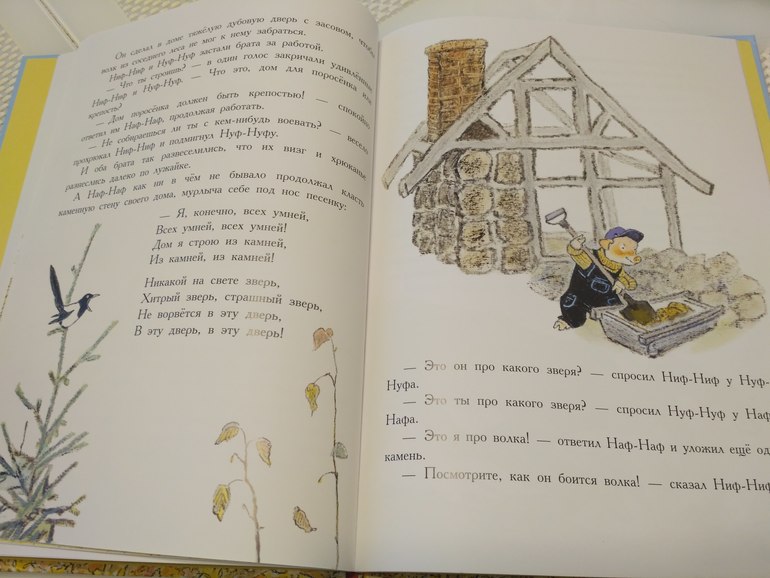 Он сделал в доме тяжёлую дубовую дверь с засовом, чтобы
волк из соседнего леса не мог к нему забраться.
Ниф-Ниф и Нуф-Нуф застали брата за работой.
— Что ты строишь? — в один голос закричали удивлённые
Ниф-Ниф и Нуф-Нуф. — Что это, дом для поросёнка или
крепость?
— Дом поросёнка должен быть крепостью! — спокойно
ответил им Наф-Наф, продолжая работать.
— Не собираешься ли ты с кем-нибудь воевать? — весело
прохрюкал Ниф-Ниф и подмигнул Нуф-Нуфу.
И оба брата так развеселились, что их визг и хрюканье
разнеслись далеко по лужайке.
А Наф-Наф как ни в чём не бывало продолжал класть
каменную стену своего дома, мурлыча себе под нос песенку:
— Я, конечно, всех умней,
Всех умней, всех умней!
Дом я строю из камней,
Из камней, из камней!
Никакой на свете зверь,
Хитрый зверь, страшный зверь,
Не ворвётся в эту дверь,
В эту дверь, в эту дверь!
— Это он про какого зверя? — спросил Ниф-Ниф у Нуф-
Нуфа.
— Это ты про какого зверя? — спросил Нуф-Нуф у Наф-
Нафа.
— Это я про волка! — ответил Наф-Наф и уложил ещё од
камень.
— Посмотрите, как он боится волка! — сказал Ниф-Ниф